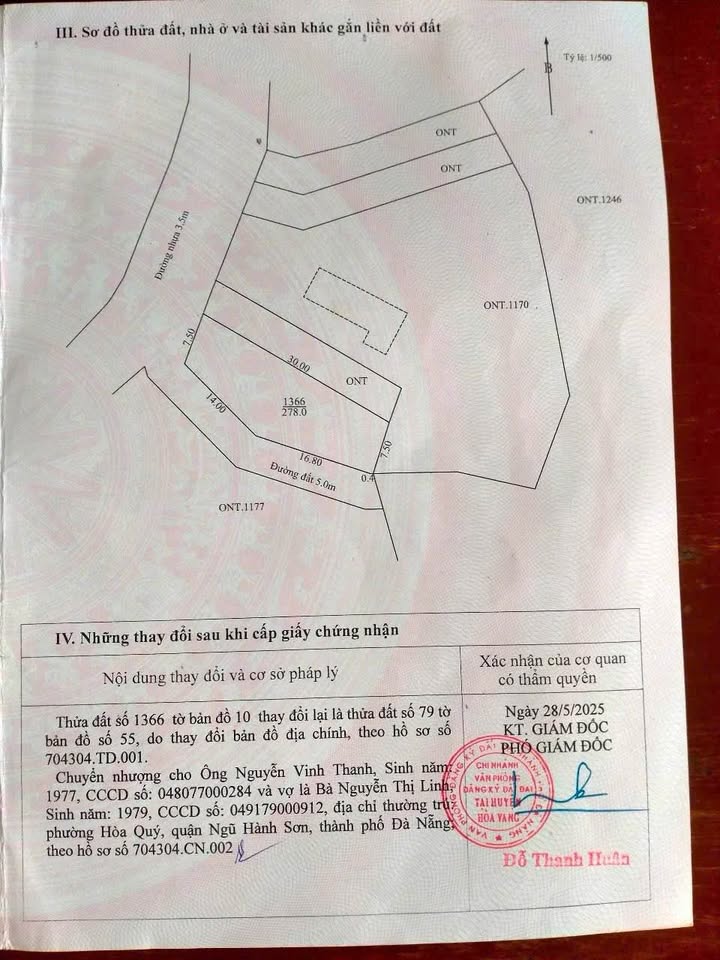 III. Sơ đồ thửa đất, nhà ở và tài sản khác gắn liền với đất
B
Tỷ lệ: 1/500
ONT
ONT
ONT.1246
Đường nhựa 3.5m
ONT.1170
7.50
30.00
ONT
14.00
1366
278.0
7.50
16.80
0.4
Đường đất 5.0m
ONT.1177
IV. Những thay đổi sau khi cấp giấy chứng nhận
Nội dung thay đổi và cơ sở pháp lý
Xác nhận của cơ quan
có thẩm quyền
Thửa đất số 1366 tờ bản đồ 10 thay đổi lại là thửa đất số 79 tờ
bản đồ số 55, do thay đổi bản đồ địa chính, theo hồ sơ số
704304.TD.001.
Chuyển nhượng cho Ông Nguyễn Vinh Thanh, Sinh năm:
1977, CCCD số: 048077000284 và vợ là Bà Nguyễn Thị Linh,
Sinh năm: 1979, CCCD số: 049179000912, địa chỉ thường trú
phường Hòa Quý, quận Ngũ Hành Sơn, thành phố Đà Nẵng,
theo hồ sơ số 704304.CN.002
Ngày 28/5/2025
KT. GIÁM ĐỐC
PHÓ GIÁM ĐỐC
CHI NHÁNH
VĂN PHÒNG
ĐĂNG KÝ ĐẤT ĐAI
TẠI HUYỆN
HÒA VANG
Đỗ Thanh Huân